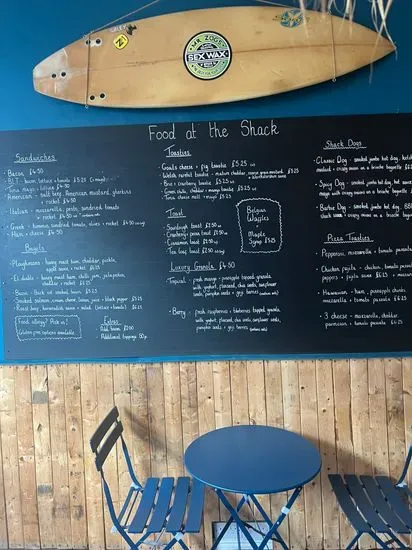 MR. ZOGS
SEX WAX
Food at the Shack
Sandwiches
Bacon £4.50
BLT - bacon, lettuce + tomato £5.25
Tuna mayo + lettuce £4.50
American - ham, American mustard, gherkins
+ rocket £4.50
Italian - mozzarella, pesto, sundried tomato
+ rocket £4.50
Greek - hummus, sundried tomato, olives + rocket £4.50
Ham + cheese £4.50
Bagels
Ploughmans - honey roast ham, cheddar, pickle,
apple rocket £6.25
El diablo - honey roast ham, chilli jam, jalapeños,
cheddar + rocket £6.25
Smoked salmon, cream cheese, lemon juice + black pepper £5.25
Roast beef, horseradish sauce + salad (lettuce + tomato) £6.25
Food allergy? Ask us!
Gluten free options available.
Extras
Add bacon £2.00
Additional toppings 50p
Toasties
Goats cheese + fig toastie £5.25
Welsh rarebit toastie - mature cheddar,
Brie + cranberry toastie £5.25
Tuna cheese melt + mayo £5.25
Toast
Sourdough toast £2.50
Cinnamon toast £2.50
Tea loaf toast £2.50
Belgian
Waffles
+
Maple
Syrup £5.25
Luxury Granola £4.50
Tropical - pink mango + pineapple topped granola
with yoghurt, flaxseed, chia seeds, sunflower
seeds, pumpkin seeds + goji berries
Berry - fresh raspberries + blueberries topped granola
with yoghurt, flaxseed, chia seeds, sunflower seeds,
pumpkin seeds + goji berries
Shack Dogs
Classic Dog - smoked jumbo hot dog,
mustard + crispy onions in a brioche baguette
Spicy Dog - smoked jumbo hot dog,
mayo with crispy onions in a brioche
Barbie Dog - smoked jumbo hot dog, BBQ
Pizza Toasties
Pepperoni, mozzarella + tomato
Chicken fajita - chicken, tomato
peppers + fajita sauce £6.25
Hawaiian - ham, pineapple chunks,
mozzarella + tomato passata £6.25
3 cheese - mozzarella, cheddar,
parmesan + tomato passata £6.25